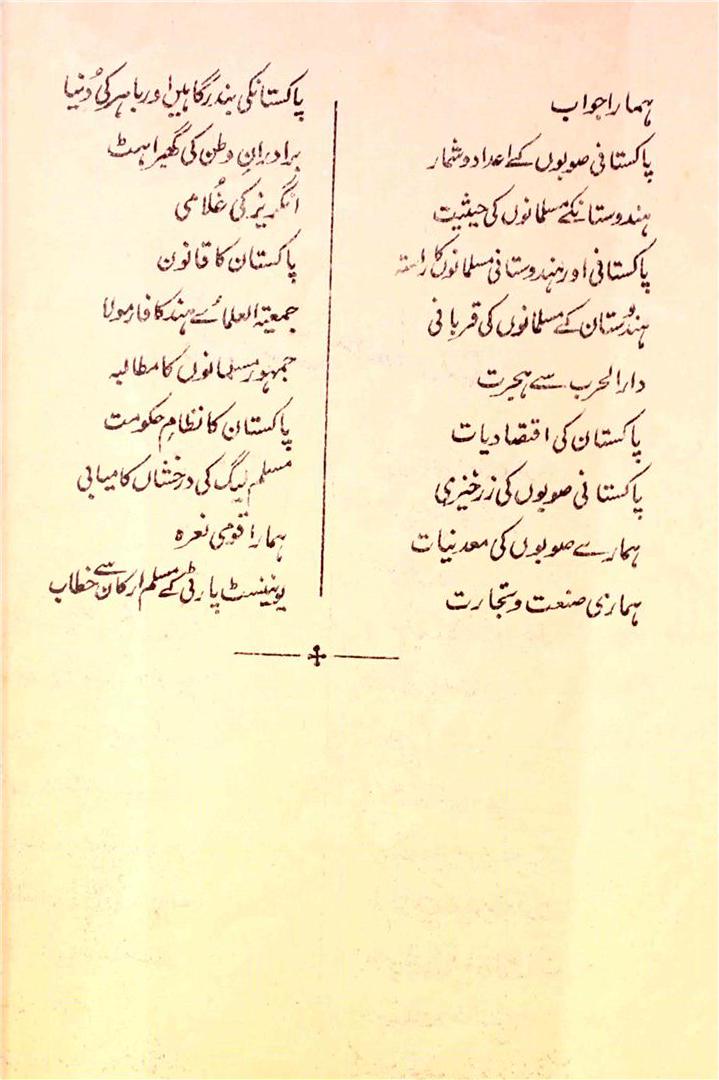 ہمارا جواب
پاکستانی صوبوں کے اعداد و شمار
ہندوستانکے مسلمانوں کی حیثیت
پاکستانی اور ہندوستانی مسلمانوں کا راستہ
ہندوستان کے مسلمانوں کی قربانی
دارالحرب سے ہجرت
پاکستان کی اقتصادیات
پاکستانی صوبوں کی زرخیزی
ہمارے صوبوں کی معدنیات
ہماری صنعت و تجارت
پاکستانکی بندرگاہیں اور باہر کی دُنیا
برادرانِ وطن کی گھبراہٹ
انگریز کی غُلامی
پاکستان کا قانون
جمعیۃ العلمائے ہند کا فارمولا
جمہور مسلمانوں کا مطالبہ
پاکستان کا نظامِ حکومت
مسلم لیگ کی درخشاں کامیابی
ہمارا قومی نعرہ
یونینسٹ پارٹی کے مسلم ارکان سے خطاب